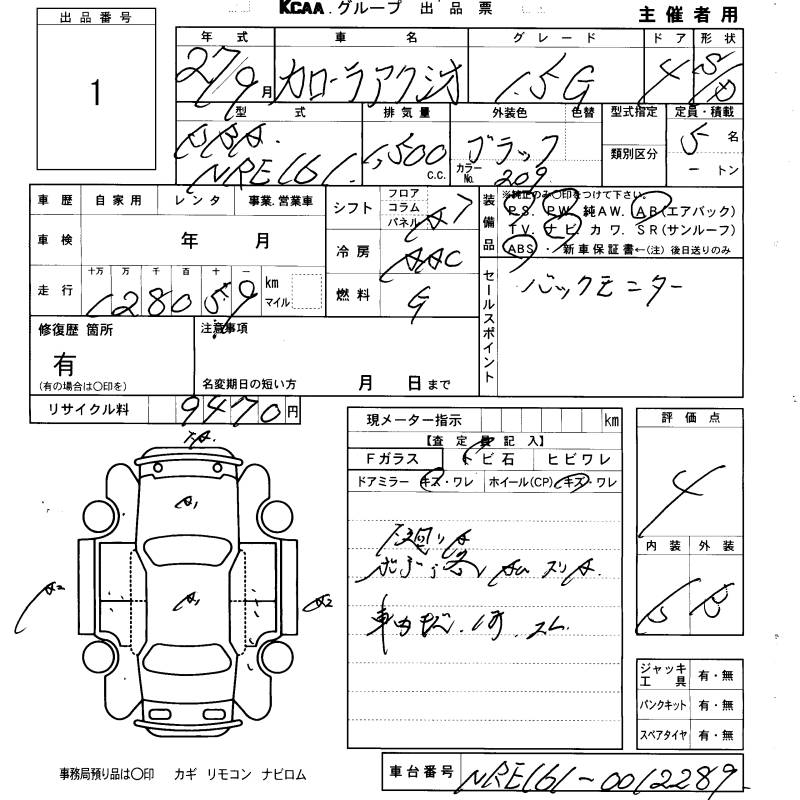 KCAA.グループ 出品票
主催者用
出品番号
1
年式 車名 グレード ドア 形状
27/9月 カローラアクシオ 1.5G 4 S/D
型式 排気量 外装色 色替 型式指定 定員・積載
DBA.
NRE161. 1,500 C.C. ブラック カラーNo. 209 類別区分 5名
ートン
車歴 自家用 レンタ 事業.営業車
シフト フロア コラム パネル A7
装備品 ※純正のみ〇印をつけて下さい。
PS. PW. 純AW. AB(エアバック)
TV. ナビ カワ. SR(サンルーフ)
ABS・ 新車保証書←(注)後日送りのみ
車検 年 月
冷房 AAC
走行 十万 万 千 百 十 一 km マイル
128059
燃料 G
セールスポイント バックモニター
修復歴 箇所
有
(有の場合は〇印を)
注意事項
名変期日の短い方 月 日まで
リサイクル料 9470円
現メーター指示 km
評価点
4
【査定員記入】
Fガラス トビ石 ヒビワレ
ドアミラー キズ・ワレ ホイール(CP) キズ・ワレ
A1
A1
A2
A2
内装 外装
B
ジャッキ工具 有・無
パンクキット 有・無
スペアタイヤ 有・無
事務局預り品は〇印 カギ リモコン ナビロム
車台番号 NRE161-0012289